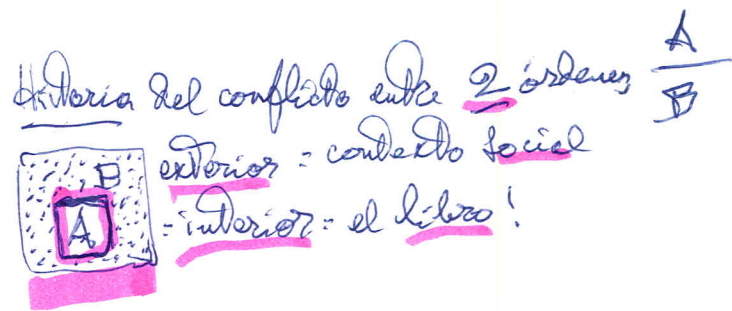 Historia del conflicto entre 2 órdenes A
B
B exterior = contexto social
A = interior = el libro!